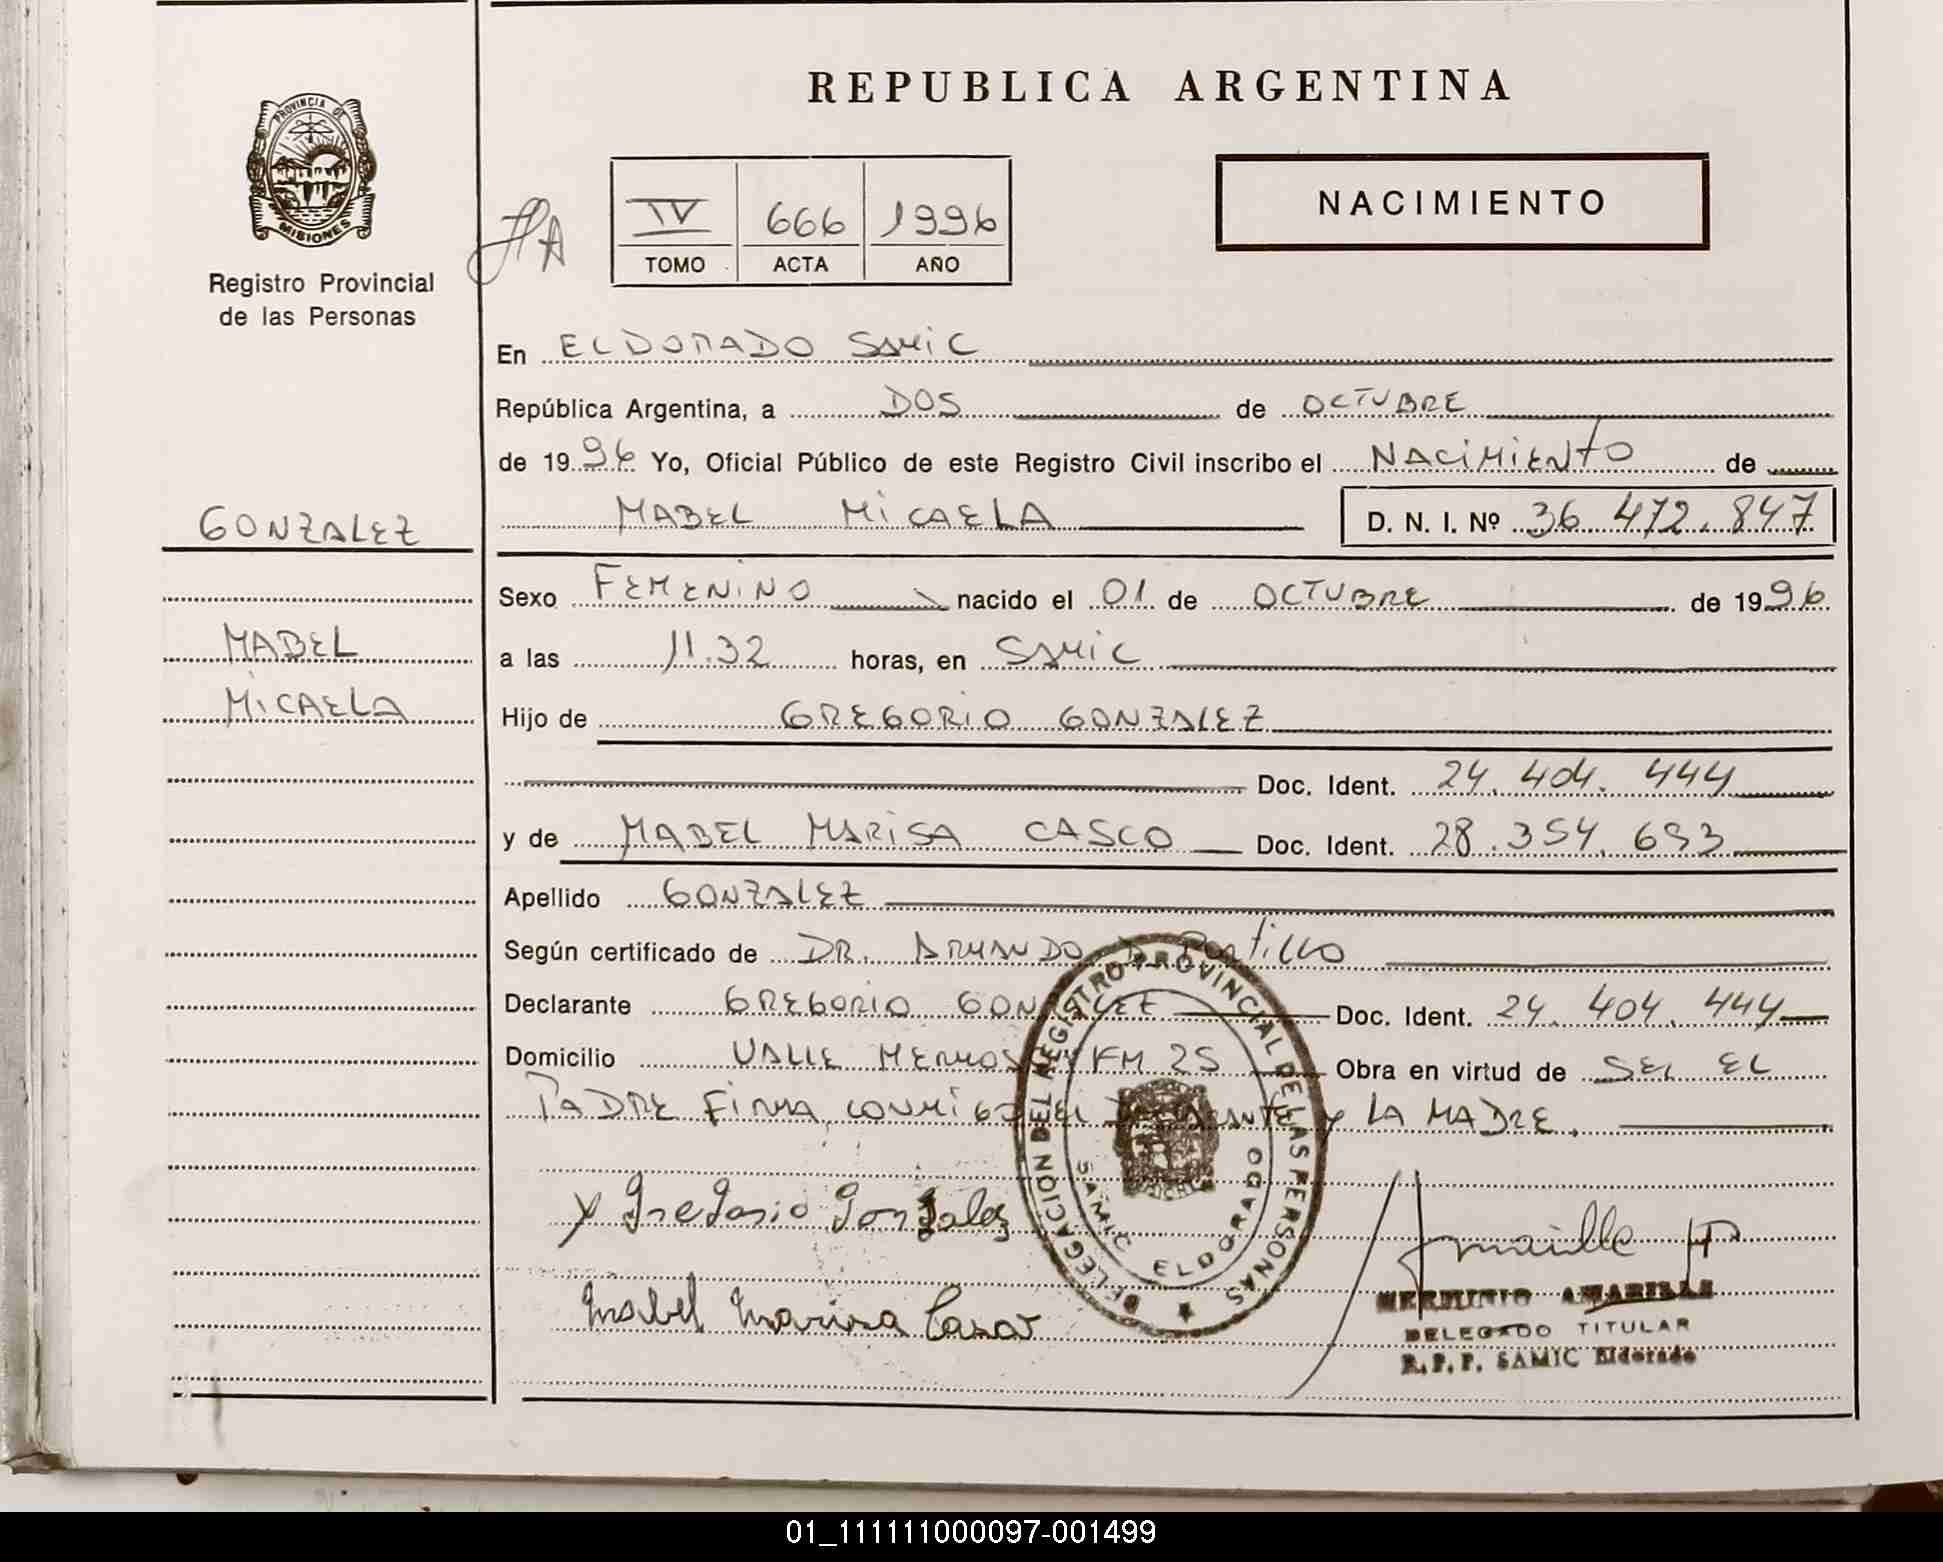 REPUBLICA ARGENTINA
PROVINCIA DE
MISIONES
Registro Provincial
de las Personas
IV 666 1996
TOMO ACTA AÑO
NACIMIENTO
En ELDORADO SAMIC
República Argentina, a DOS de OCTUBRE
de 1996 Yo, Oficial Público de este Registro Civil inscribo el NACIMIENTO de
MABEL MICAELA D. N. I. Nº 36 472.847
GONZALEZ
MABEL
MICAELA
Sexo FEMENINO nacido el 01 de OCTUBRE de 1996
a las 11.32 horas, en SAMIC
Hijo de GREGORIO GONZALEZ
Doc. Ident. 24.404.444
y de MABEL MARISA CASCO Doc. Ident. 28.354.693
Apellido GONZALEZ
Según certificado de DR. ARMANDO D. Portillo
Declarante GREGORIO GONZALEZ Doc. Ident. 24.404.444
Domicilio VALLE HERMOSO KM 25 Obra en virtud de SER EL
PADRE FIRMA CONMIGO EL DECLARANTE Y LA MADRE.
DELEGACION DEL REGISTRO PROVINCIAL DE LAS PERSONAS
SAMIC ELDORADO
x Gregorio Gonzalez
Mabel Marisa Casco
HERMINIO AMARILLA
DELEGADO TITULAR
R.P.P. SAMIC Eldorado
01_111111000097-001499